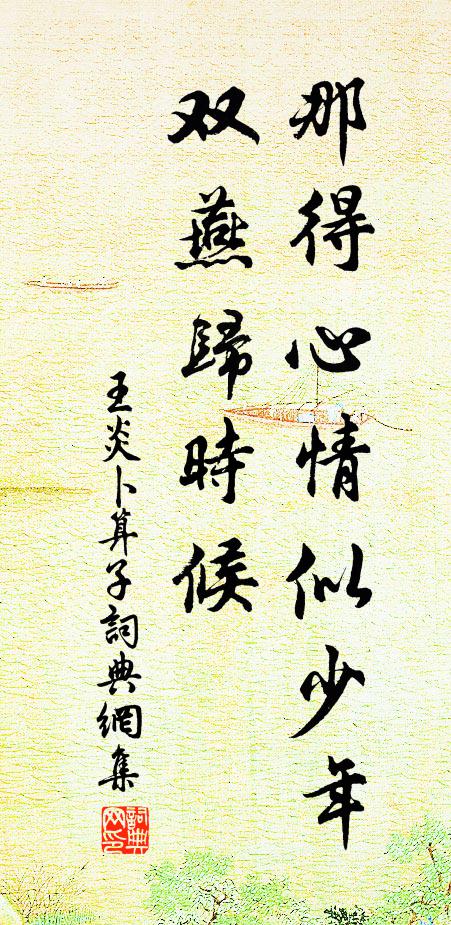 那得心情似少年
双燕歸時候
王炎卜算子詞典網集
詞典
网印